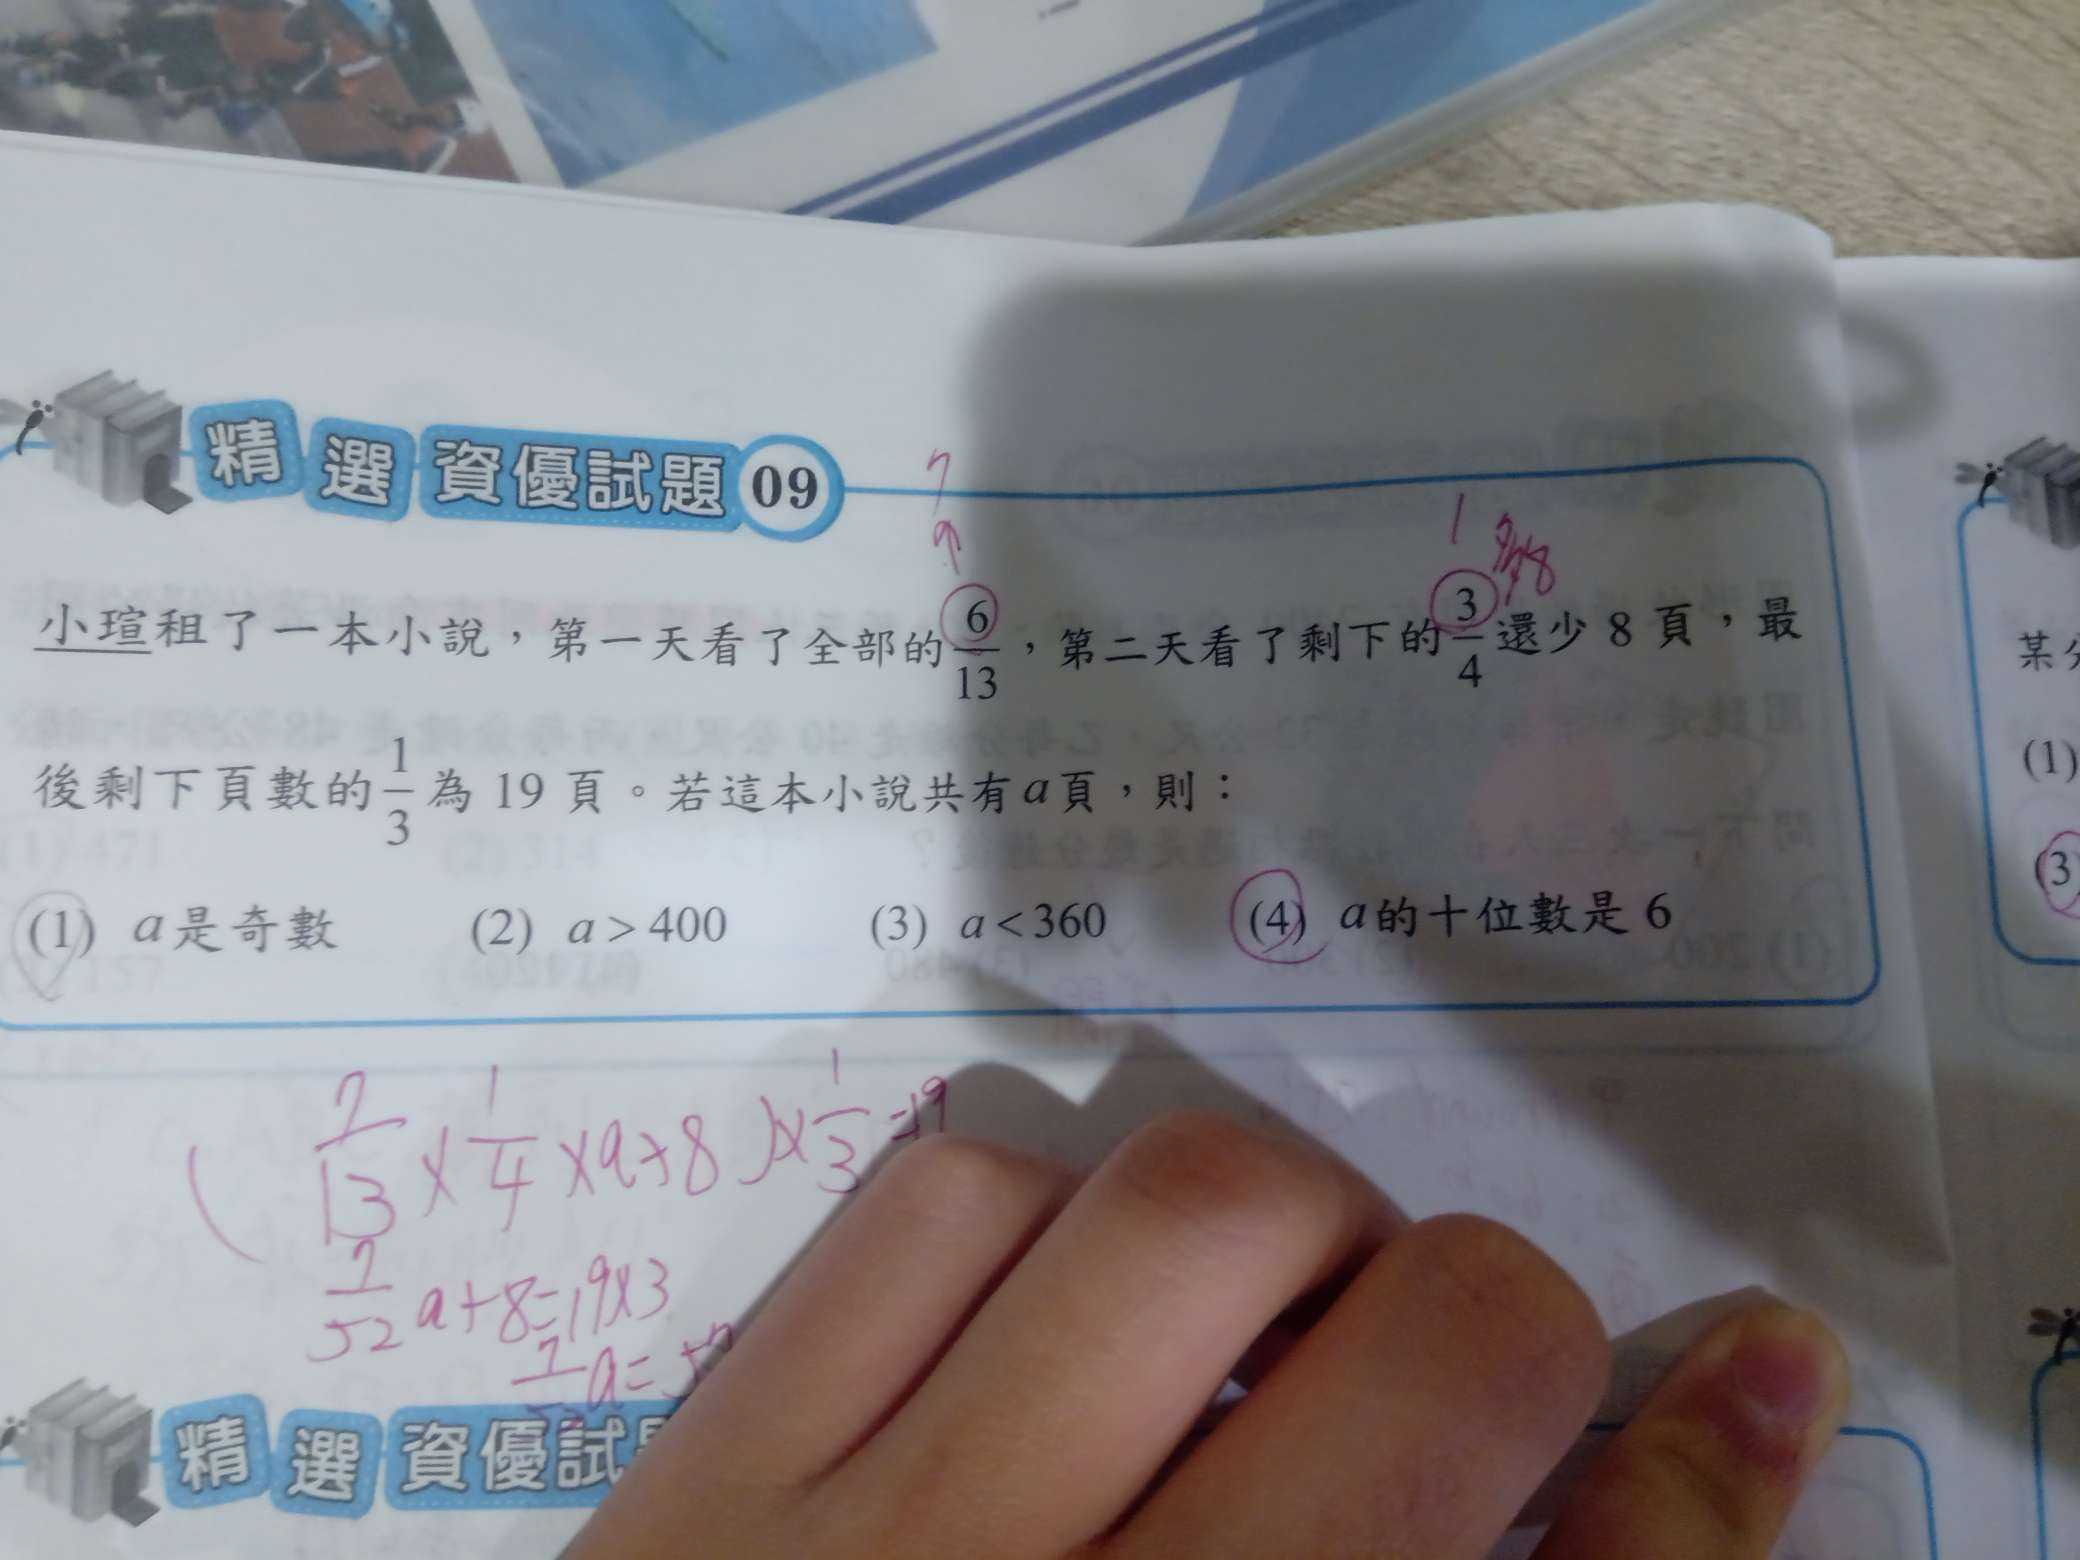 精選資優試題 09
7
1
小瑄租了一本小說，第一天看了全部的 6/13，第二天看了剩下的 3/4 還少 8 頁，最
後剩下頁數的 1/3 為 19 頁。若這本小說共有 a 頁，則：
(1) a 是奇數 (2) a > 400 (3) a < 360 (4) a 的十位數是 6
( 7/13 × 1/4 × a + 8 ) × 1/3 = 19
7/52 a + 8 = 19 × 3
精選資優試
某
(1)
(3)